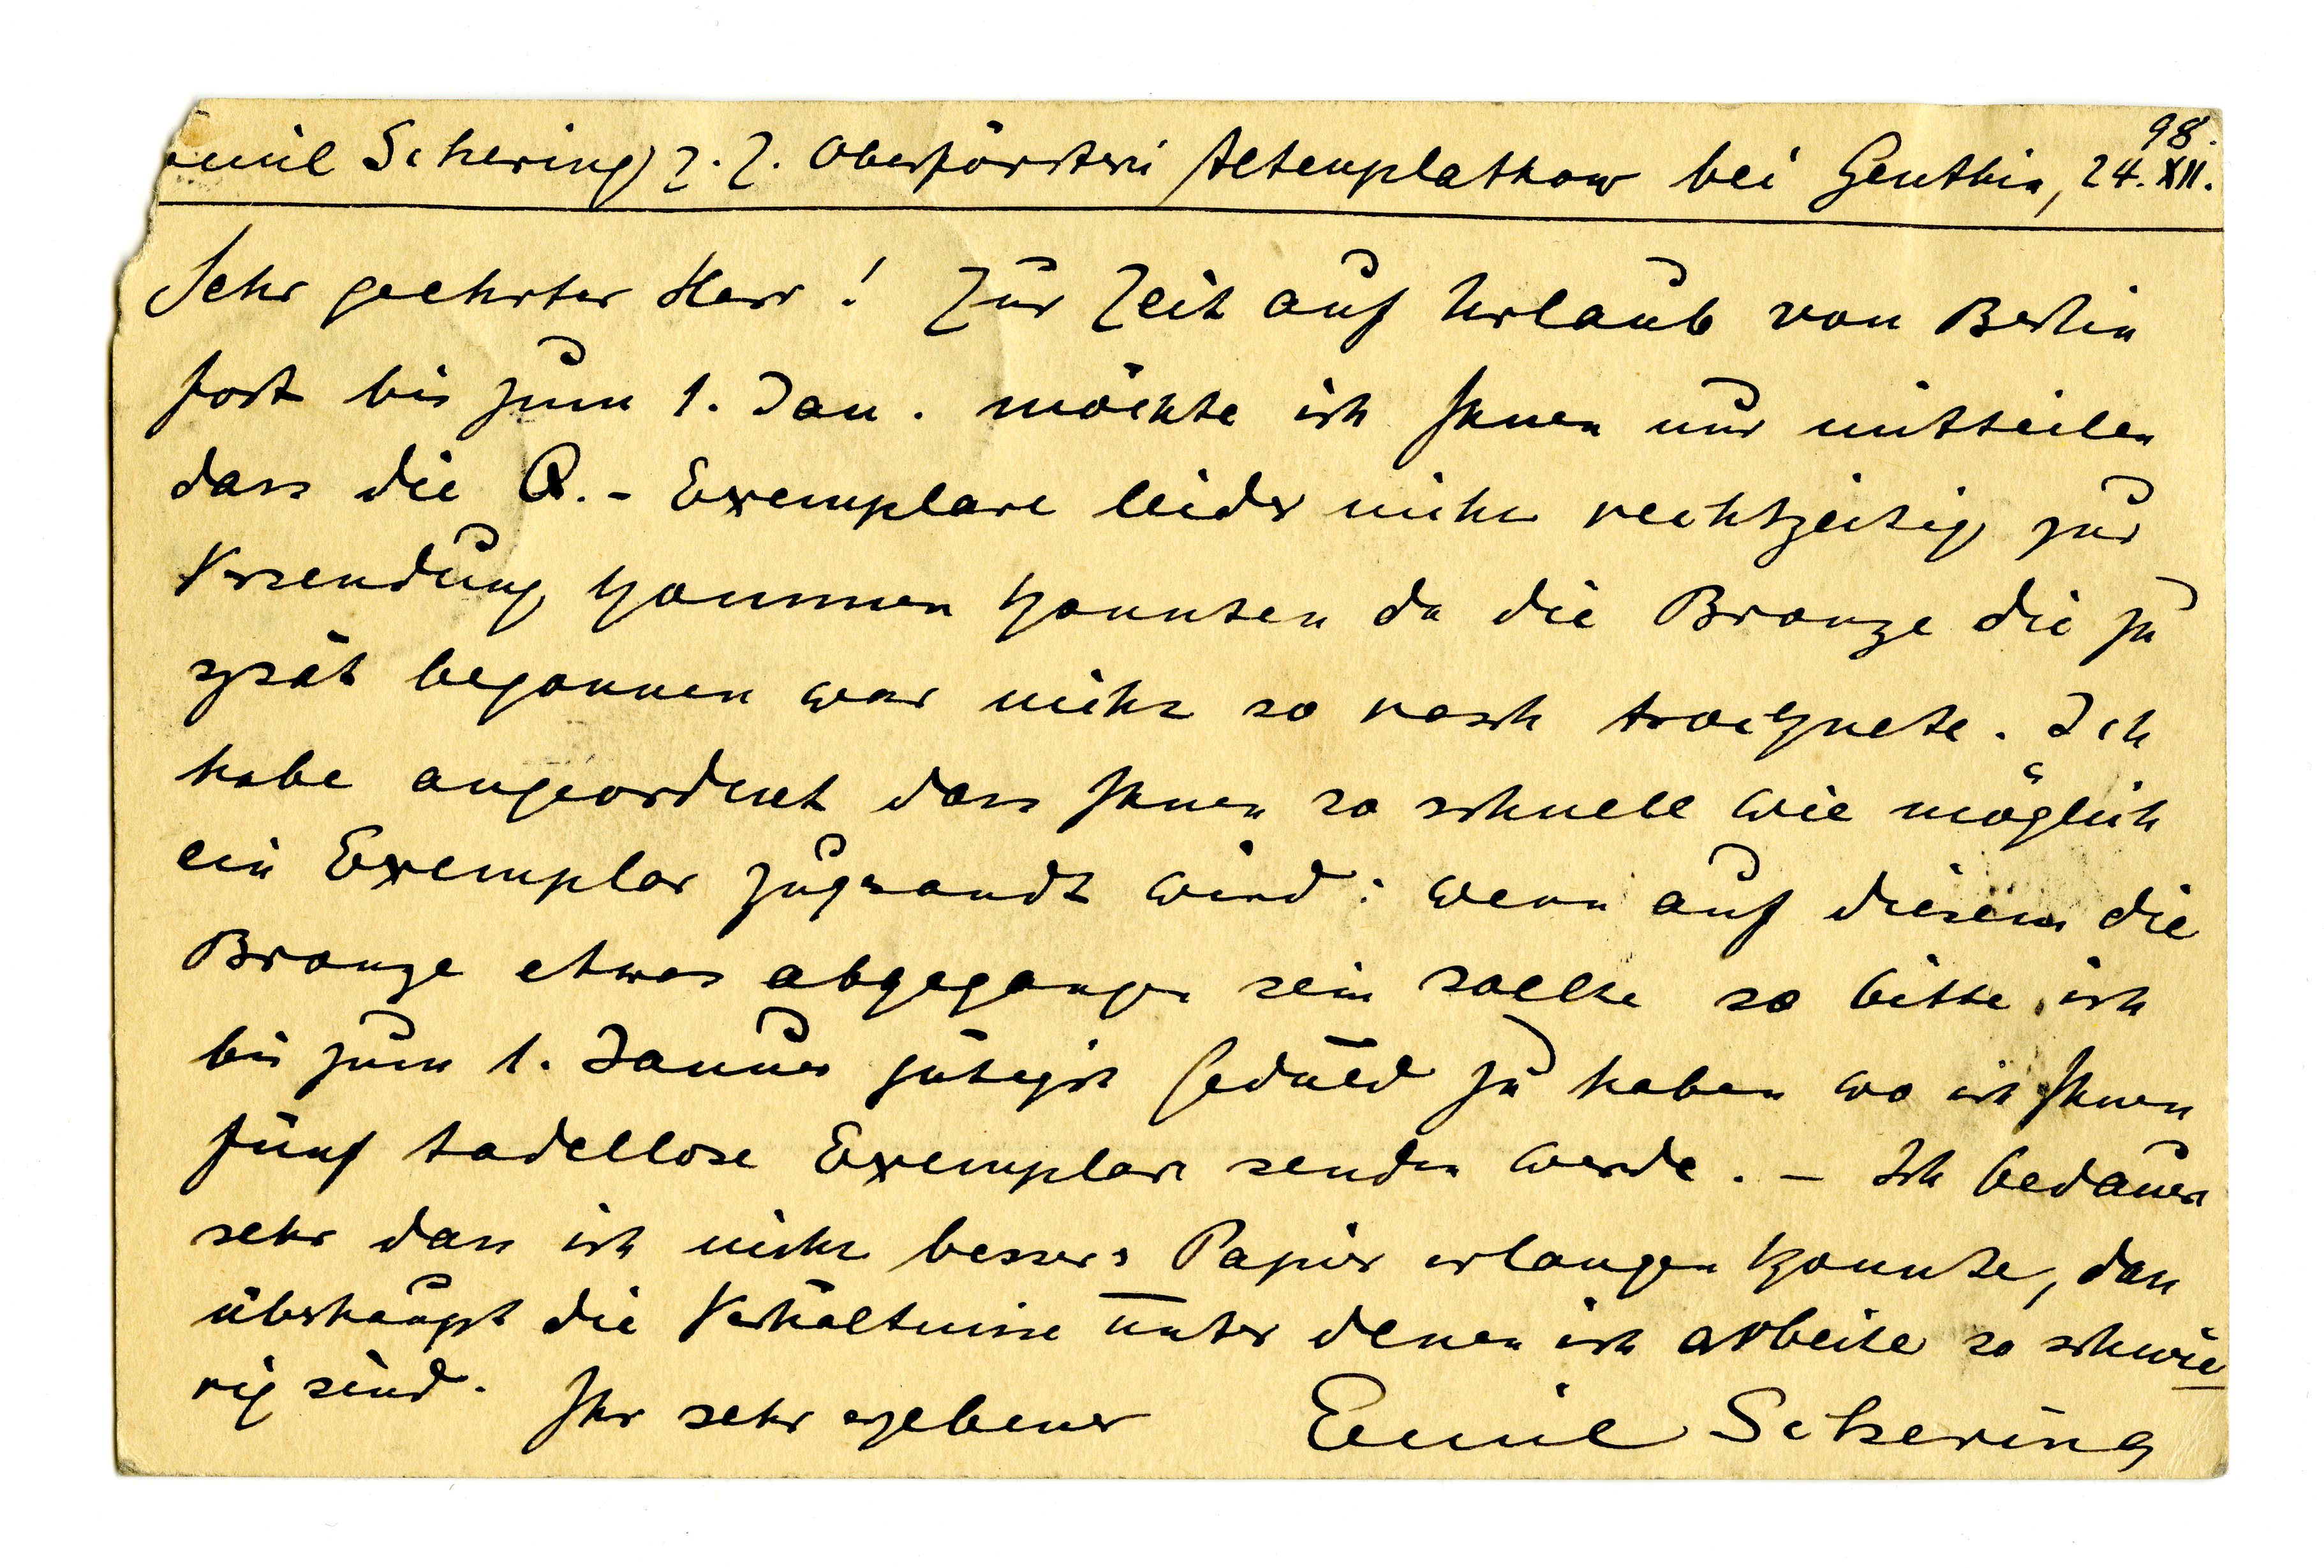 Emil Schering z. Z. Oberförsterei Altenplathow bei Genthin, 24. XII. 98.
Sehr geehrter Herr! Zur Zeit auf Urlaub von Berlin
fort bis zum 1. Jan. möchte ich Ihnen nur mitteilen
dass die Q.- Exemplare leider nicht rechtzeitig zur
Versendung kommen konnten da die Bronze die zu
spät begonnen war nicht so rasch trocknete. Ich
habe angeordnet dass Ihnen so schnell wie möglich
ein Exemplar zugesandt wird: wenn auf diesem die
Bronze etwas abgegangen sein sollte so bitte ich
bis zum 1. Januar gütigst Geduld zu haben wo ich Ihnen
fünf tadellose Exemplare senden werde. – Ich bedauere
sehr dass ich nicht besseres Papier erlangen konnte, dass
überhaupt die Verhältnisse unter denen ich arbeite so schwie
rig sind. Ihr sehr ergebener Emil Schering